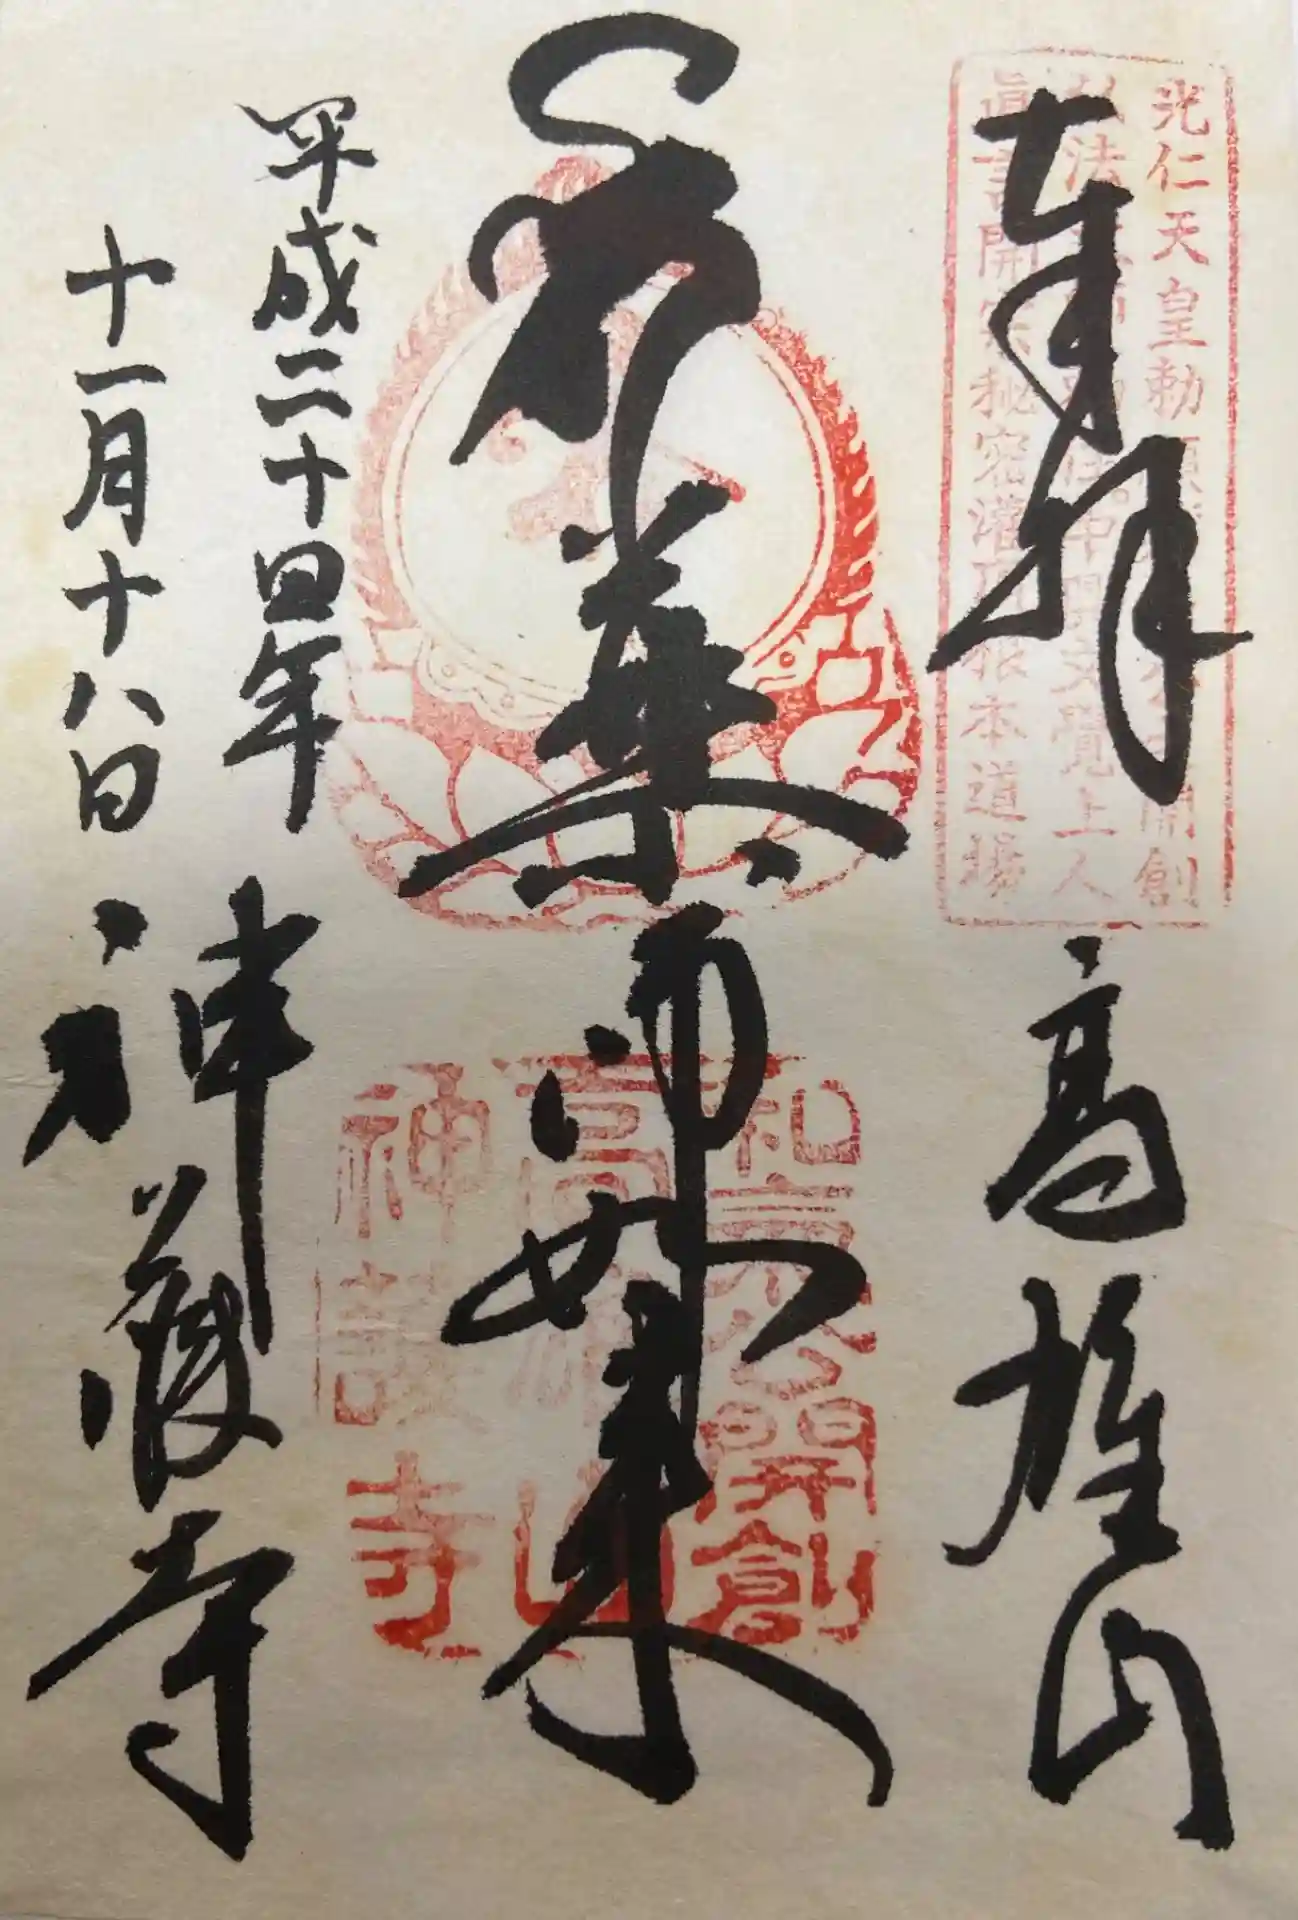 奉拝
高雄山
薬師如来
平成二十四年
十一月十八日
神護寺
光仁天皇勅願 開創
弘法 住中興文覚上人
眞言開宗秘密灌頂根本道場
和気公開創
高雄山
神護寺